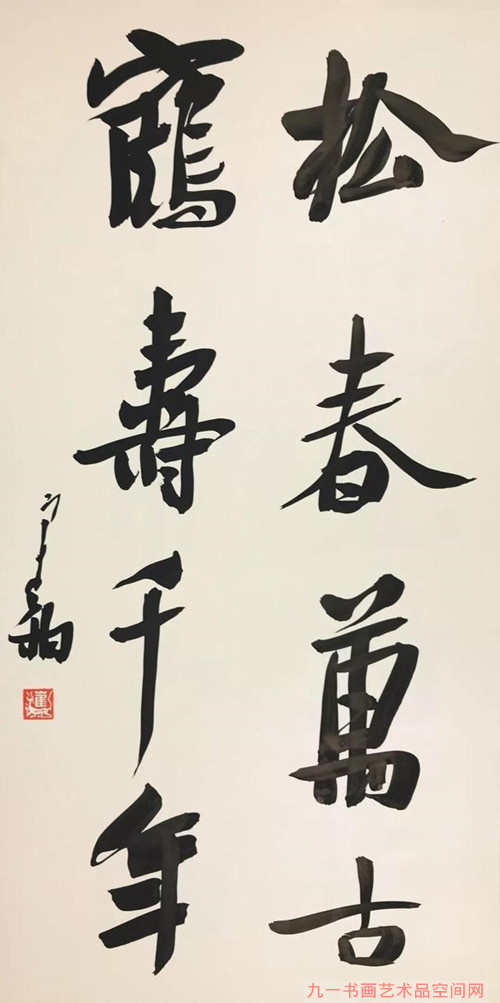 松春萬古
鶴壽千年
九一书画艺术品空间网